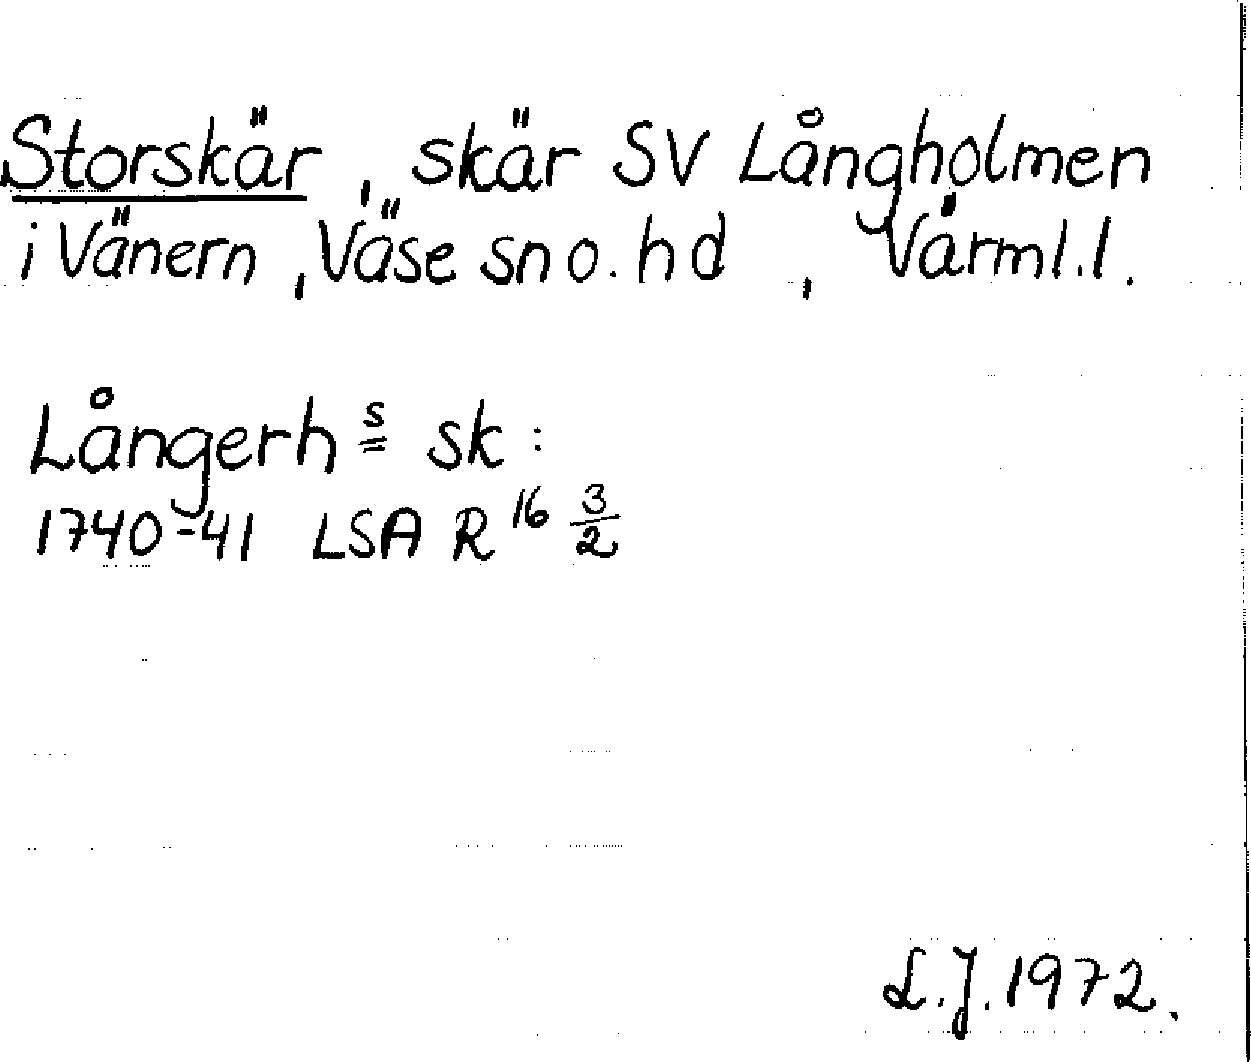 Storskär, skär SV Långholmen
i Vänern, Väse sn o. hd, Värml. l.
Långerh s sk:
1740-41 LSA R 16 3/2
L.J. 1972.